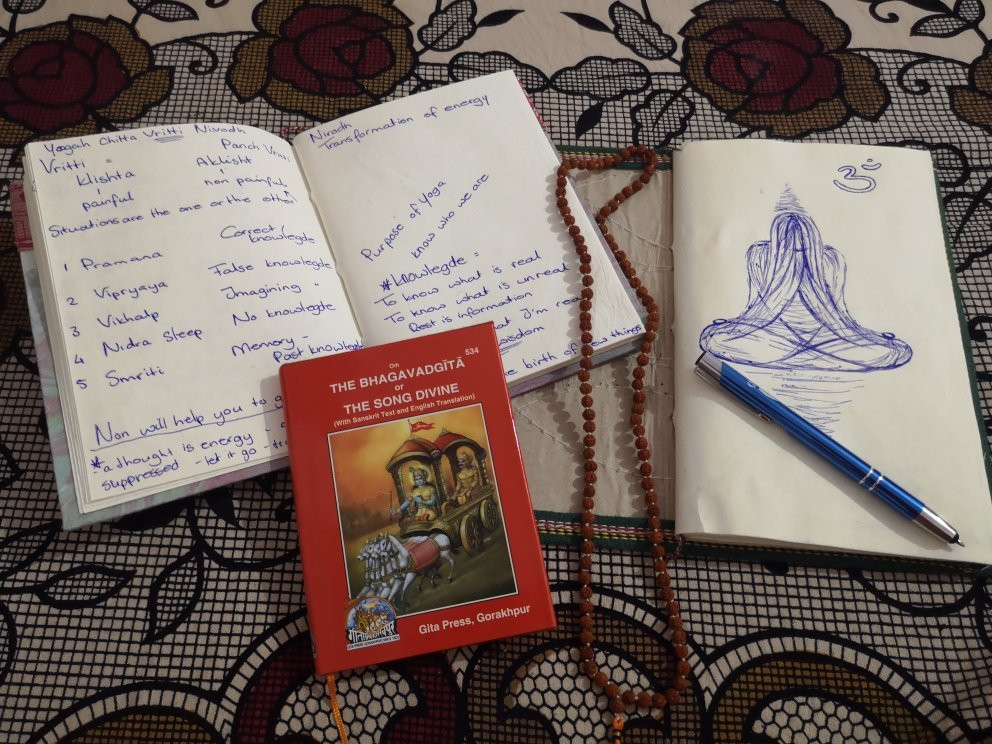 Yogah Chitta Vritti Nirodh
Vritti =
Panch Vritti
Klishta
Aklisht
painful
non painful
Situations are the one or the other
1 Pramana
Correct knowlegde
2 Vipryaya
False knowlegde
3 Vikhalp
Imagining "
4 Nidra Sleep
No knowlegde
5 Smriti
Memory -
Past knowlegde
Non will help you to
* a thought is energy -
suppressed - let it go -
Nirodh
Transformation of energy
Purpose of Yoga
know who we are
* Knowlegde =
To know what is real
To know what is unreal
Rest is information
what I'm
wisdom
birth of new things
Om
THE BHAGAVADGĪTĀ 534
or
THE SONG DIVINE
(With Sanskrit Text and English Translation)
Gita Press, Gorakhpur
ॐ